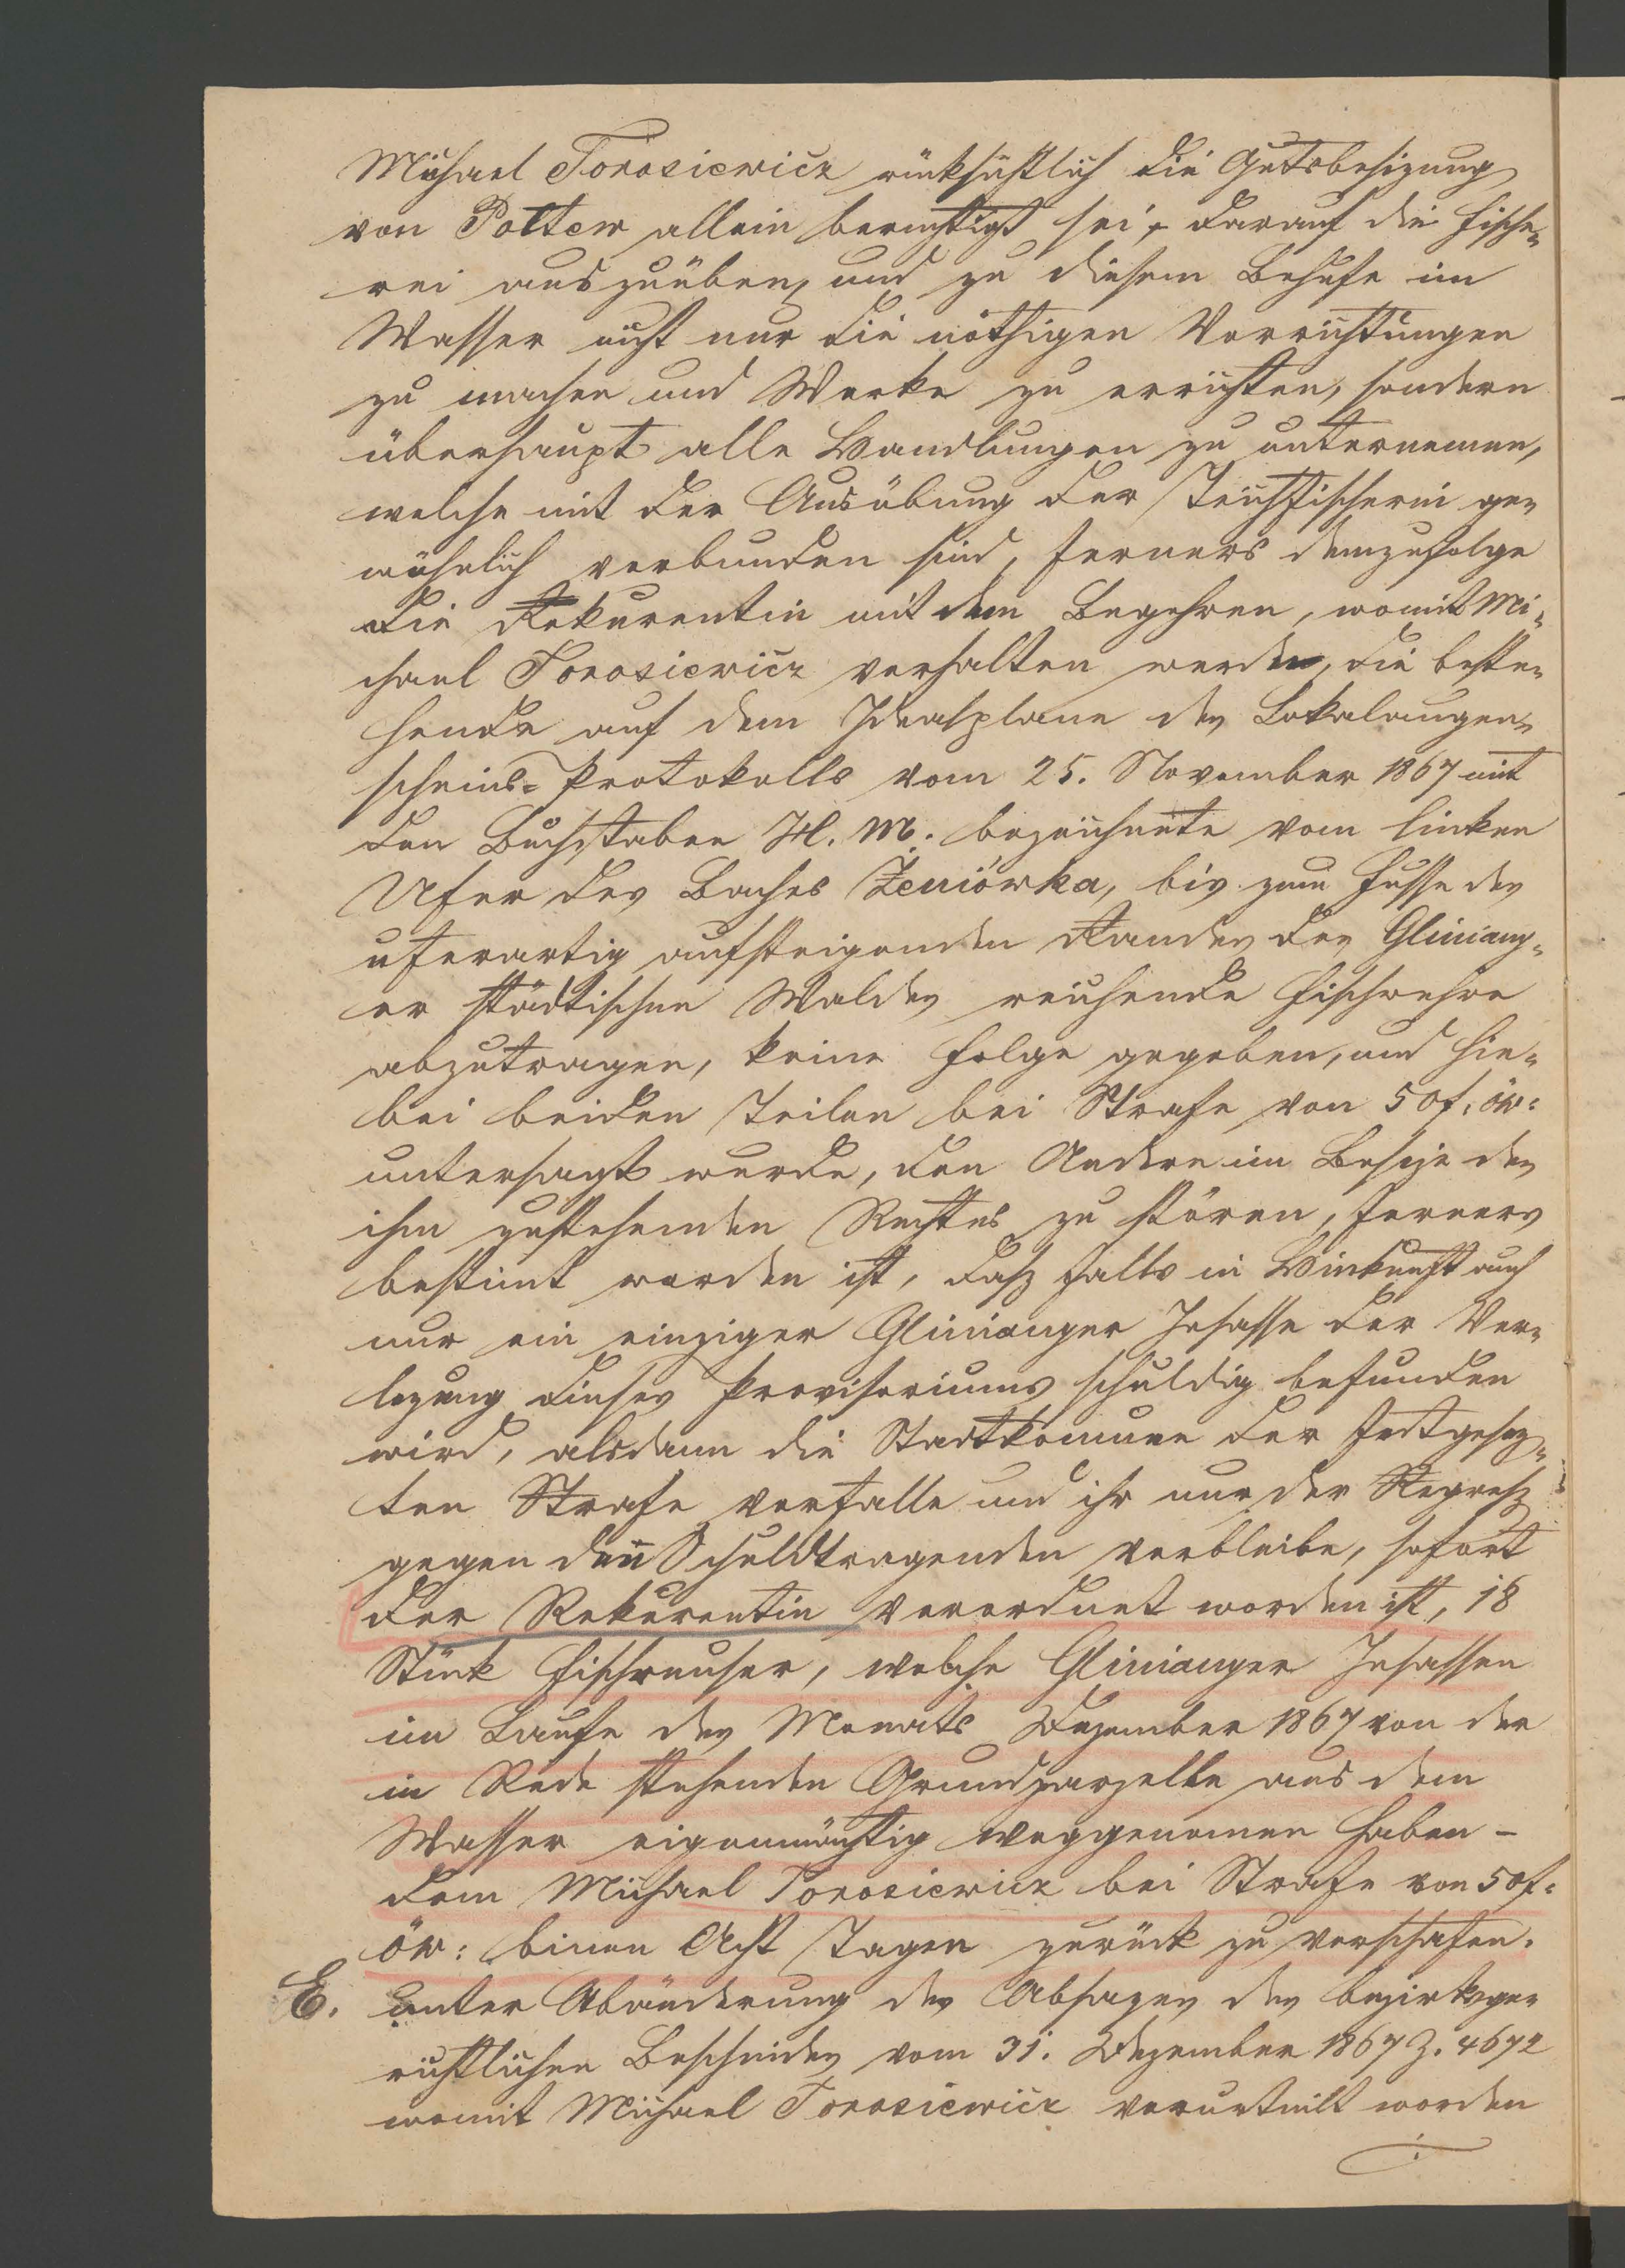 Michael Torosiewicz rücksichtlich die Gutsbesizung
von Połtew allein berechtigt sei, darauf die Fische-
rei auszuüben, und zu diesem Behufe im
Wasser nicht nur die nöthigen Vorrichtungen
zu machen und Werke zu errichten, sondern
überhaupt alle Handlungen zu unternemen,
welche mit der Ausübung der Teichfischerei ge-
wöhnlich verbunden sind, ferners demzufolge
die Rekurentin mit dem Begehren, womit Mi-
chael Torosiewicz verhalten werde, die beste-
hende auf dem Idealplane des Lokalaugen-
scheins-Protokolls vom 25. November 1867 mit
den Buchstaben H. M. bezeichnete vom linken
Ufer des Baches Żeniówka, bis zum Fusse des
uferartig aufsteigenden Randes des Gliniang-
er städtischen Waldes reichende Fischwehre
abzutragen, keine Folge gegeben, und hie-
bei beiden Teilen bei Strafe von 50 f. öw:
untersagt wurde, den Andern im Besize des
ihm zustehenden Rechtes zu stören, ferners
bestimt worden ist, dasz falls in Hinkunft auch
nur ein einziger Glinianger Insasse der Ver-
lezung dieses Provisoriums schuldig befunden
wird, alsdann die Stadtkomune der festgesez-
ten Strafe verfalle und ihr nur der Regresz
gegen den Schuldtragenden verbleibe, sofort
der Rekurentin verordnet worden ist, 18
Stück Fischreuser, welche Glinianger Insassen
im Laufe des Monats Dezember 1867 von der
in Rede stehenden Grundparzelle aus dem
Wasser eigenmächtig weggenomen haben –
dem Michael Torosiewicz bei Strafe von 50 f.
öw: binen Acht Tagen zurück zu verschafen.
E. unter Abänderung des Absazes des bezirksge-
richtlichen Bescheides vom 31. Dezember 1867 Z. 4672
womit Michael Torosiewicz verurteilt worden